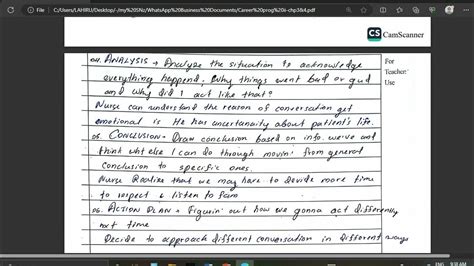 File C:/Users/LAHIRU/Desktop/-/my%20SNz/WhatsApp%20Business%20Documents/Career%20prog%20ii-chp3&4.pdf
CS CamScanner
04. ANALYSIS → Analyse the situation to acknowledge
everything happend. Why things went bad or gud
and why did I act like that?
Nurse can understand the reason of conversation get
emotional is He has uncertanity about patient's life.
05. CONCLUSION - Draw conclusion based on info. we've and
think wht else I can do through movin' from general
conclusion to specific ones.
Nurse Realize that we may have to devide more time
to respect & listen to fam
06. ACTION PLAN → Figurin' out how we gonna act differently
nxt time
Decide to approach different conversation in different ways
For
Teacher'
Use
ENG
9:38 AM